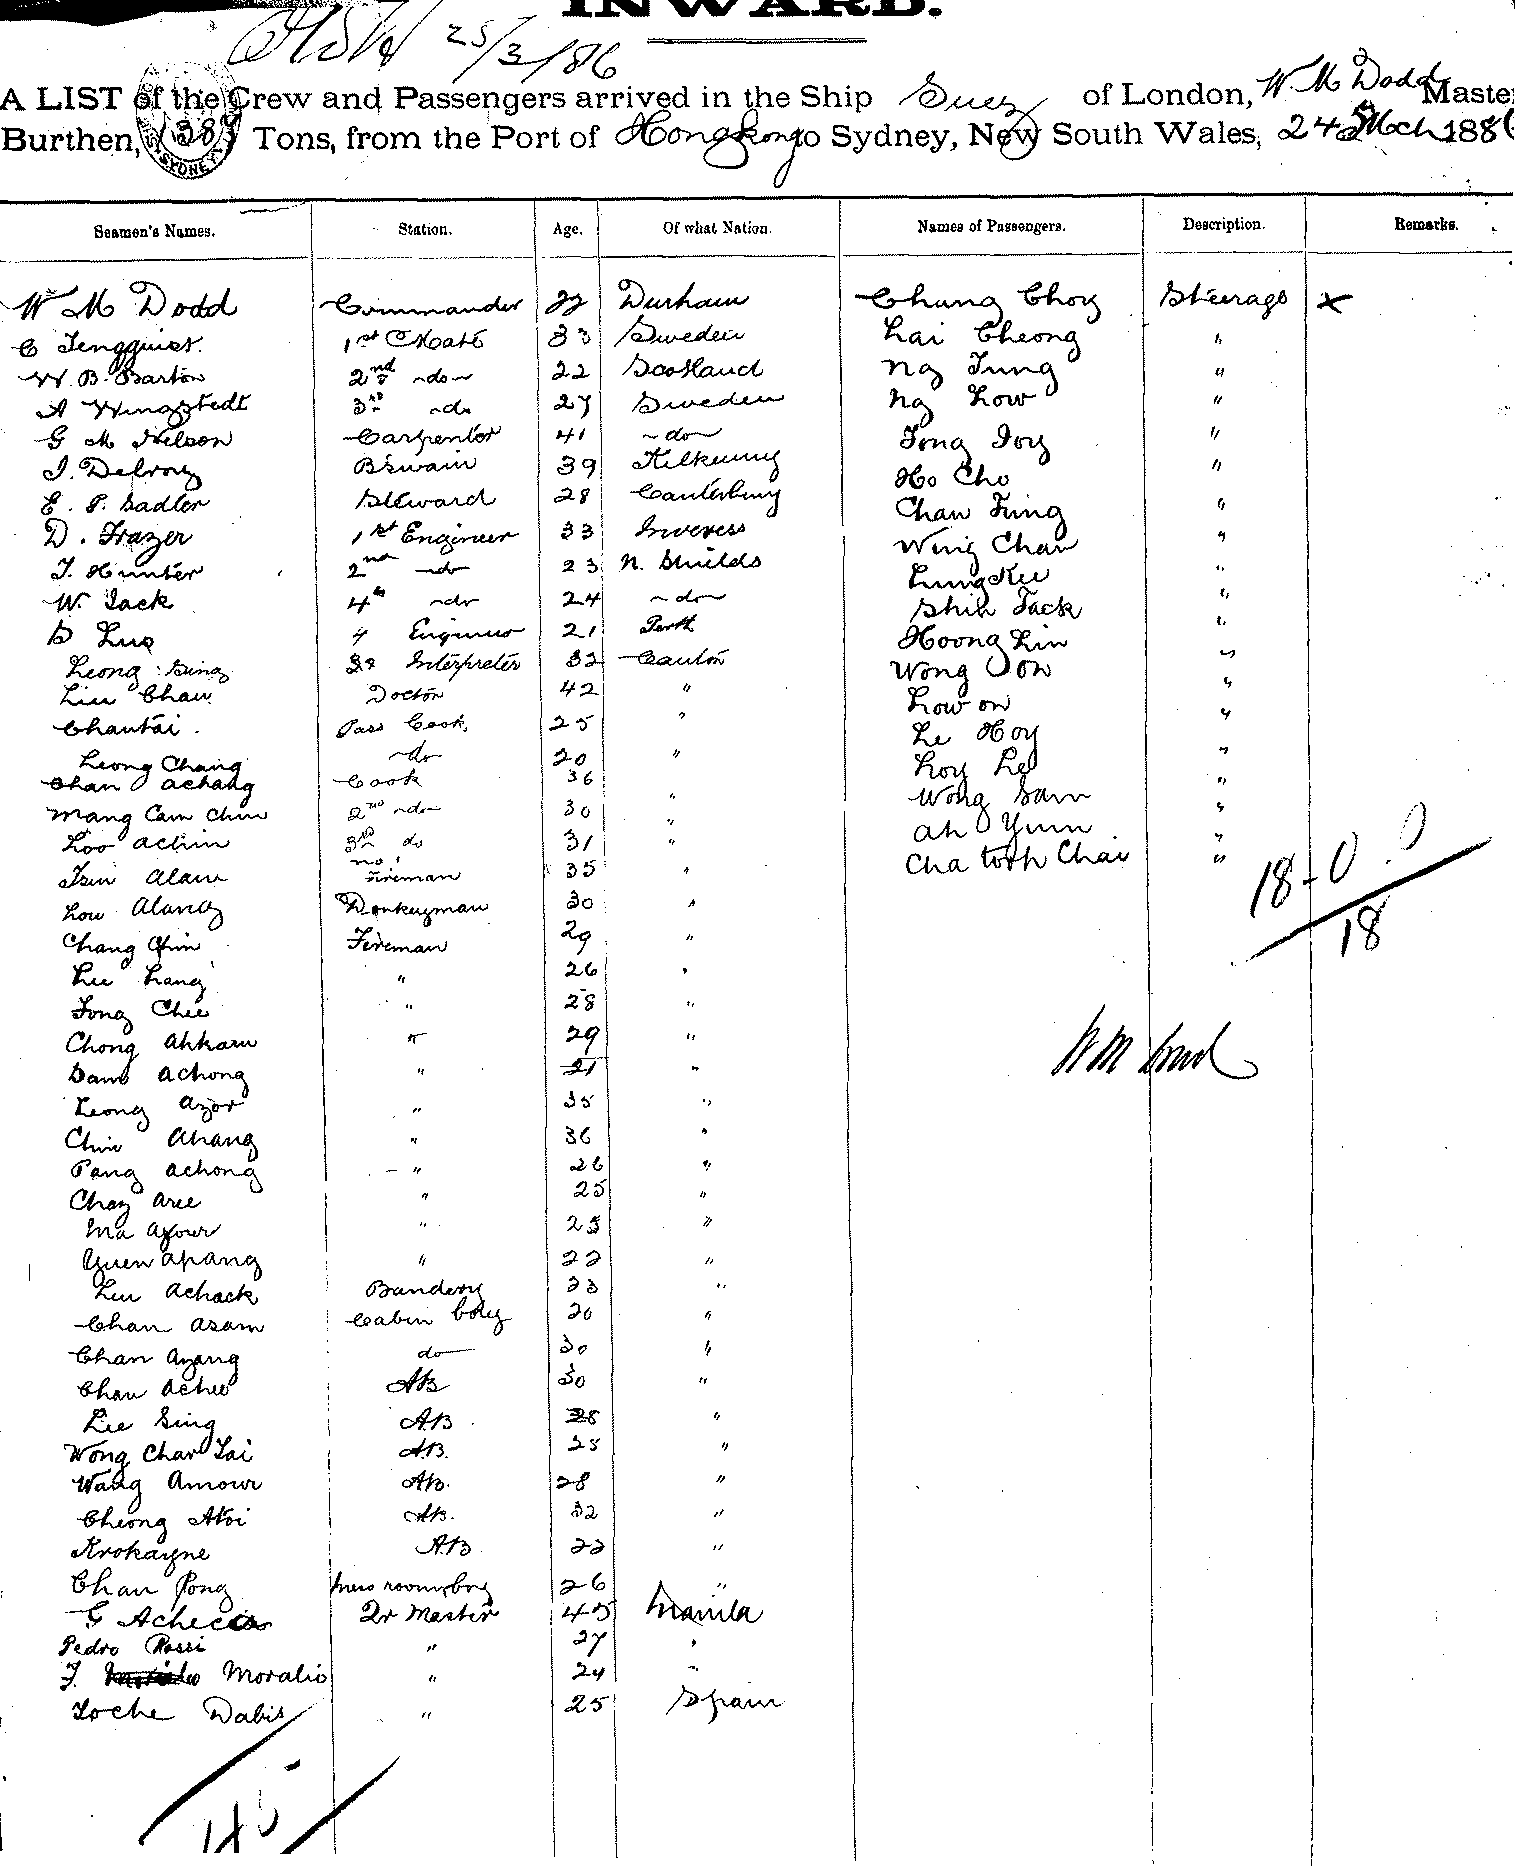 INWARD.
25/3/86
A LIST of the Crew and Passengers arrived in the Ship Suez of London, W M Dodd Master
Burthen, 1389 Tons, from the Port of Hongkong to Sydney, New South Wales, 24 Mch 1886
SYDNEY
Seamen's Names. Station. Age. Of what Nation. Names of Passengers. Description. Remarks.
W M Dodd Commander Durham Chung Choy Steerage x
C Tengquist. 1st Mate 33 Sweden Lai Cheong "
W. B. Barton 2nd do 22 Scotland Ng Tung "
A Wingstedt 3rd do 27 Sweden Ng Low "
G M Nelson Carpenter 41 do Tong Joy "
J. Delroy BSwain 39 Kilkenny Ho Cho "
E. P. Sadler Steward 28 Canterbury Chan Fung "
D. Frazer 1st Engineer 33 Inveress Wing Chan "
T. Hunter 2nd do 23 N. Shields Lung Kee "
W. Jack 4th do 24 do Shih Tack "
4 Engineer 21 Perth Hoong Lin "
Leong Sing Interpreter 32 Canton Wong On "
Lin Chan Doctor 42 " Low on "
Chantai. Pass Cook, 25 " Le Hoy "
Leong Chang do 20 " Loy Le "
Chan achang Cook 36 Wong Sam "
Mang Cam Chin 2nd do 30 " Ah Yum "
Loo achin 3rd do 31 " Cha toth Chai "
Alam no 1 Fireman 35 "
18-0
18
Low Alang Donkeyman 30 "
Chang Chin Fireman 29 "
Lee Lang " 26 "
Tong Chee " 28 "
Chong Ahkam " 29 "
Sam Achong " 21 "
Leong Azor " 35 "
Chin Ahang " 36 "
Pang achong " 26 "
Chay Aree " 25 "
Ma Afour " 25 "
Yuen apang " 22 "
Lin Achack 23 "
Chan asam Cabin boy 20 "
Chan Ayang do 30 "
Chan Achee AB 30 "
Lee Sing AB "
Wong Char Tai AB. 25 "
Wang Amow AB. 28 "
Cheong Atoi AB. 32 "
Krokayne AB 22 "
Chan Pong Mess room boy 26 "
G Qr Master 45 Manila
Pedro Rossi " 27 "
F. Moralis " 24 "
Loche Dabis " 25 Spain
W M Dodd
45